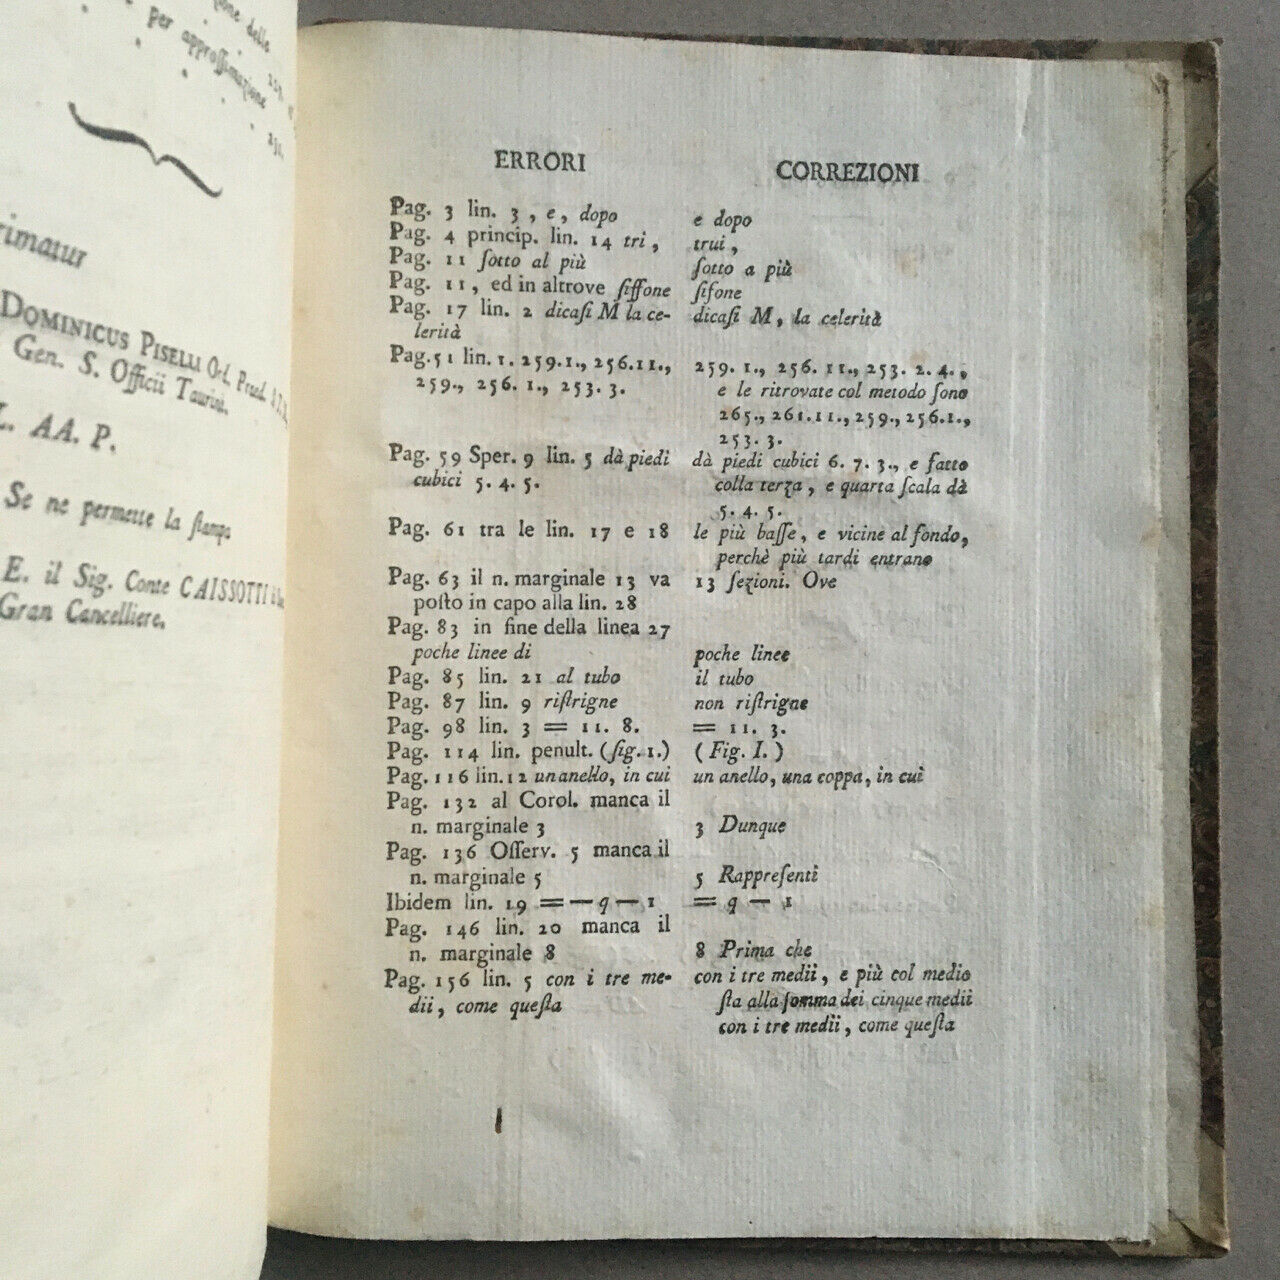 zione delle
per approssimazione 251.
rimatur
DOMINICUS PISELLI Ord. Præd.
Gen. S. Officii Taurini.
L. AA. P.
Se ne permette la ſtampa
E. il Sig. Conte CAISSOTTI
Gran Cancelliere.
ERRORI CORREZIONI
Pag. 3 lin. 3, e, dopo e dopo
Pag. 4 princip. lin. 14 tri, trui,
Pag. 11 ſotto al più ſotto a più
Pag. 11, ed in altrove ſiffone ſifone
Pag. 17 lin. 2 dicaſi M la ce- dicaſi M, la celerità
lerità
Pag. 51 lin. 1. 259.1., 256.11., 259. 1., 256. 11., 253. 2. 4.,
259., 256. 1., 253. 3. e le ritrovate col metodo ſono
265., 261.11., 259., 256.1.,
253. 3.
Pag. 59 Sper. 9 lin. 5 dà piedi dà piedi cubici 6. 7. 3., e fatto
cubici 5. 4. 5. colla terza, e quarta ſcala dà
5. 4. 5.
Pag. 61 tra le lin. 17 e 18 le più baſſe, e vicine al fondo,
perchè più tardi entrano
Pag. 63 il n. marginale 13 va 13 ſezioni. Ove
poſto in capo alla lin. 28
Pag. 83 in fine della linea 27
poche linee di poche linee
Pag. 85 lin. 21 al tubo il tubo
Pag. 87 lin. 9 riſtrigne non riſtrigne
Pag. 98 lin. 3 = 11. 8. = 11. 3.
Pag. 114 lin. penult. (fig. 1.) (Fig. I.)
Pag. 116 lin. 12 un anello, in cui un anello, una coppa, in cui
Pag. 132 al Corol. manca il
n. marginale 3 3 Dunque
Pag. 136 Oſſerv. 5 manca il
n. marginale 5 5 Rappreſenti
Ibidem lin. 19 = — q — 1 = q — 1
Pag. 146 lin. 20 manca il
n. marginale 8 8 Prima che
Pag. 156 lin. 5 con i tre me- con i tre medii, e più col medio
dii, come queſta ſta alla ſomma dei cinque medii
con i tre medii, come queſta